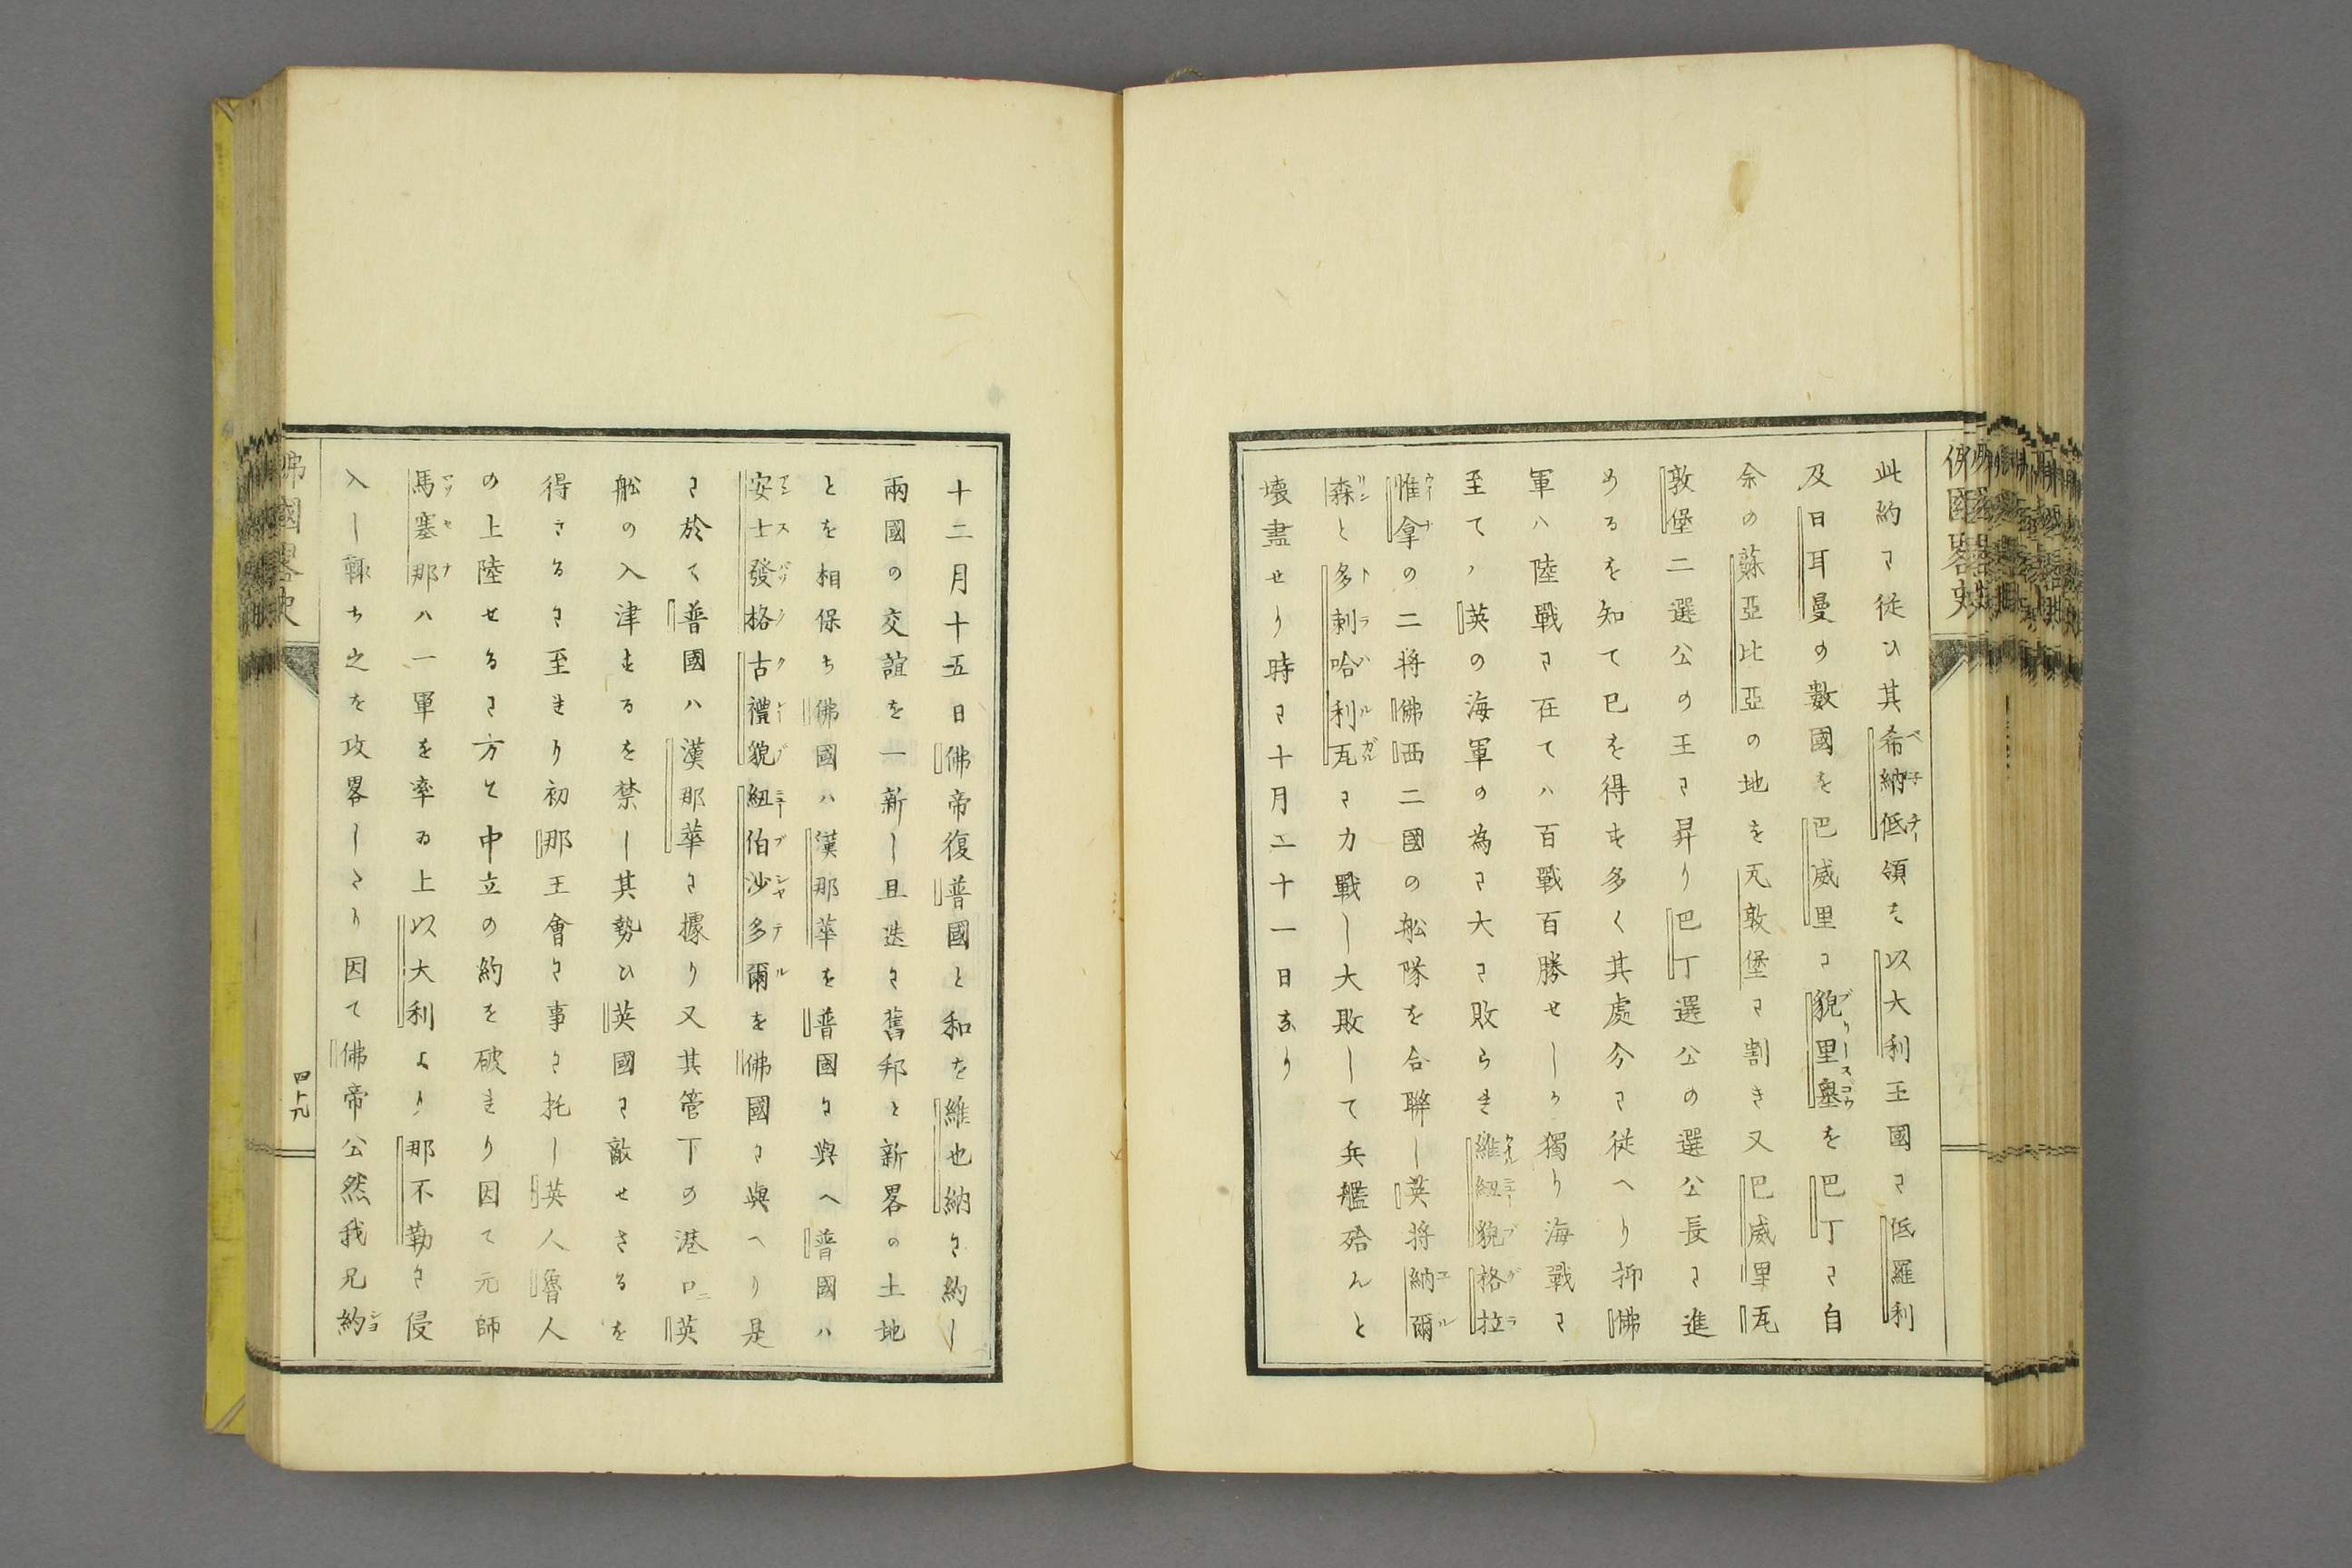 此約に従ひ其希納低領を以大利王國に低羅利
及日耳曼の數國を巴威里に貌里墨を巴丁に自
余の蘇亞比亞の地を瓦敦堡に割き又巴威里瓦
敦堡二選公の王に昇り巴丁選公の選公長に進
めるを知て已を得す多く其處分に従へり抑佛
軍ハ陸戰に在てハ百戰百勝せしか獨り海戰に
至てハ英の海軍の為に大に敗られ維紐貌格拉
惟拿の二将佛西二國の舩隊を合聯し英将納爾
森と多剌哈利瓦に力戰し大敗して兵艦殆んと
壊盡せり時に十月二十一日なり
佛國畧史
十二月十五日佛帝復普國と和を維也納に約し
兩國の交誼を一新し且迭に舊邦と新畧の土地
とを相保ち佛國ハ漢那華を普國に與へ普國ハ
安士發格古禮貌紐伯沙多爾を佛國に與へり是
に於て普國ハ漢那華に據り又其管下の港口ニ英
舩の入津するを禁し其勢ひ英國に敵せさるを
得さるに至れり初那王會に事に托し英人魯人
の上陸せるに方て中立の約を破れり因て元師
馬塞那ハ一軍を率ゐ上以大利より那不勒に侵
入し輙ち之を攻畧したり因て佛帝公然我兄約
佛國畧史
四十九